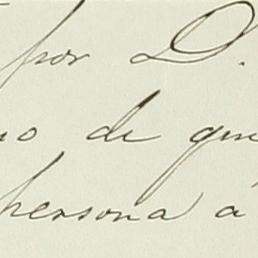 por D.
no de que
persona á